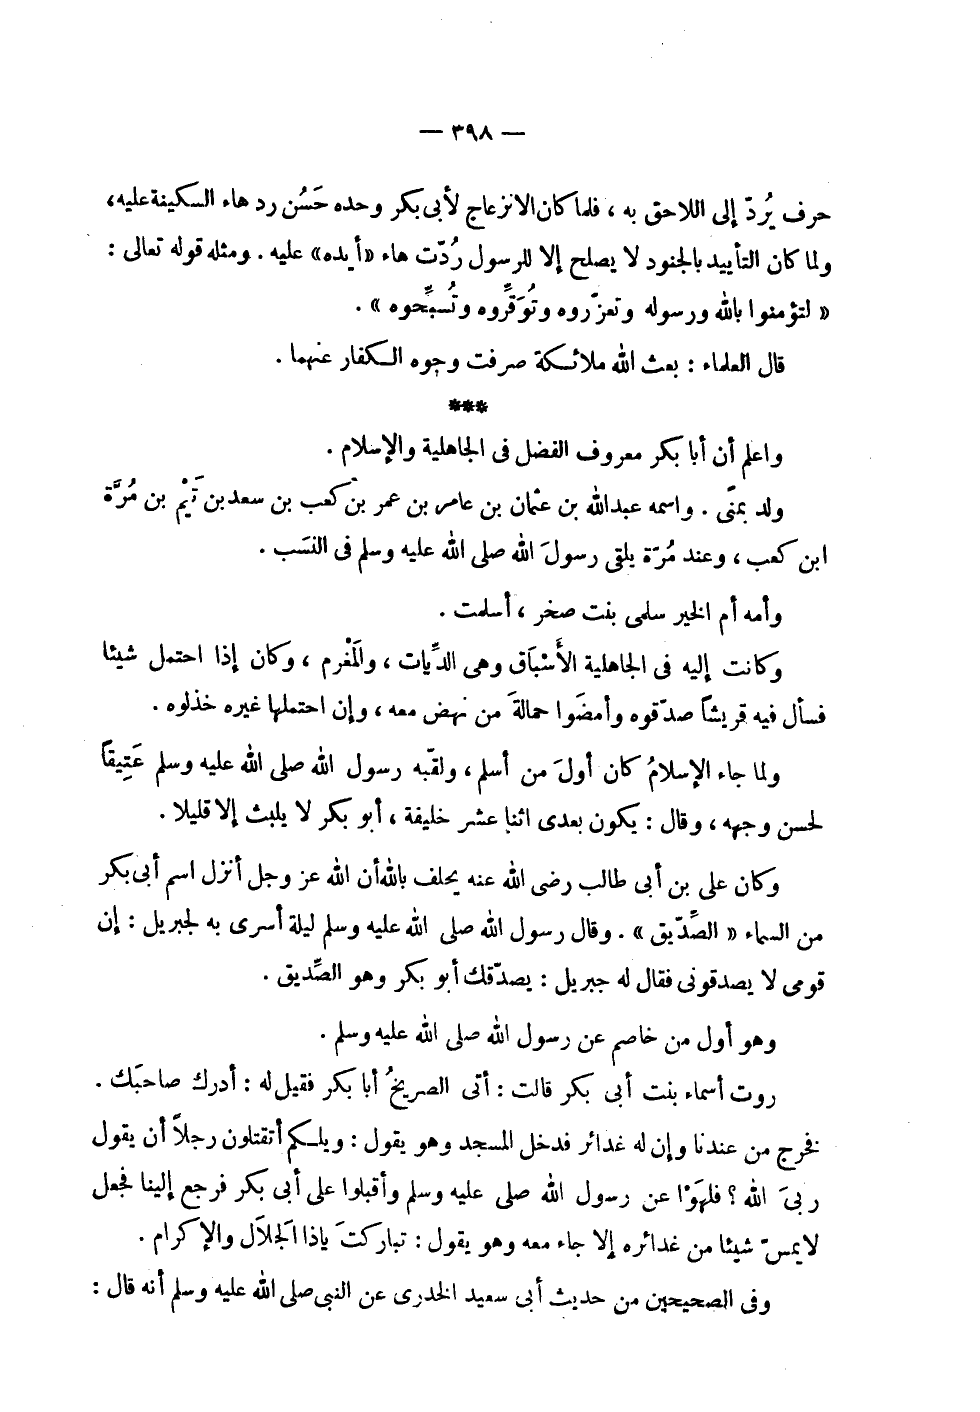 — ٣٩٨ —
حرف يُردّ إلى اللاحق به ، فلما كان الانزعاج لأبى بكر وحده حَسُن رد هاء السكينة عليه ،
ولما كان التأييد بالجنود لا يصلح إلا للرسول رُدّت هاء «أيده» عليه . ومثله قوله تعالى :
« لتؤمنوا بالله ورسوله وتعزّروه وتُوَقِّروه وتُسبِّحوه » .
قال العلماء : بعث الله ملائكة صرفت وجوه الكفار عنهما .
***
واعلم أن أبا بكر معروف الفضل فى الجاهلية والإسلام .
ولد بمنًى . واسمه عبدالله بن عثمان بن عامر بن عمر بن كعب بن سعد بن تَيْم بن مُرَّة
ابن كعب ، وعند مُرّة يلقى رسولَ الله صلى الله عليه وسلم فى النسَب .
وأمه أم الخير سلمى بنت صخر ، أسلمت .
وكانت إليه فى الجاهلية الأَسْبَاق وهى الدِّيات ، والمَغْرم ، وكان إذا احتمل شيئا
فسأل فيه قريشاً صدّقوه وأمضَوا حمالةَ من نهض معه ، وإن احتملها غيره خذلوه .
ولما جاء الإسلامُ كان أولَ من أسلم ، ولقّبه رسول الله صلى الله عليه وسلم عَتِيقاً
لحسن وجهه ، وقال : يكون بعدى اثنا عشر خليفة ، أبو بكر لا يلبث إلا قليلا .
وكان على بن أبى طالب رضى الله عنه يحلف بالله أن الله عز وجل أنزل اسم أبى بكر
من السماء « الصِّدّيق » . وقال رسول الله صلى الله عليه وسلم ليلة أسرى به لجبريل : إن
قومى لا يصدقونى فقال له جبريل : يصدّقك أبو بكر وهو الصِّديق .
وهو أول من خاصم عن رسول الله صلى الله عليه وسلم .
روت أسماء بنت أبى بكر قالت : أتى الصريخُ أبا بكر فقيل له : أدرك صاحبَك .
فخرج من عندنا وإن له غدائر فدخل المسجد وهو يقول : ويلكم أتقتلون رجلاً أن يقول
ربىَ الله ؟ فلهَوْا عن رسول الله صلى عليه وسلم وأقبلوا على أبى بكر فرجع إلينا فجعل
لا يمسّ شيئا من غدائره إلا جاء معه وهو يقول : تباركتَ ياذا الجَلاَل والإكرام .
وفى الصحيحين من حديث أبى سعيد الخدرى عن النبى صلى الله عليه وسلم أنه قال :